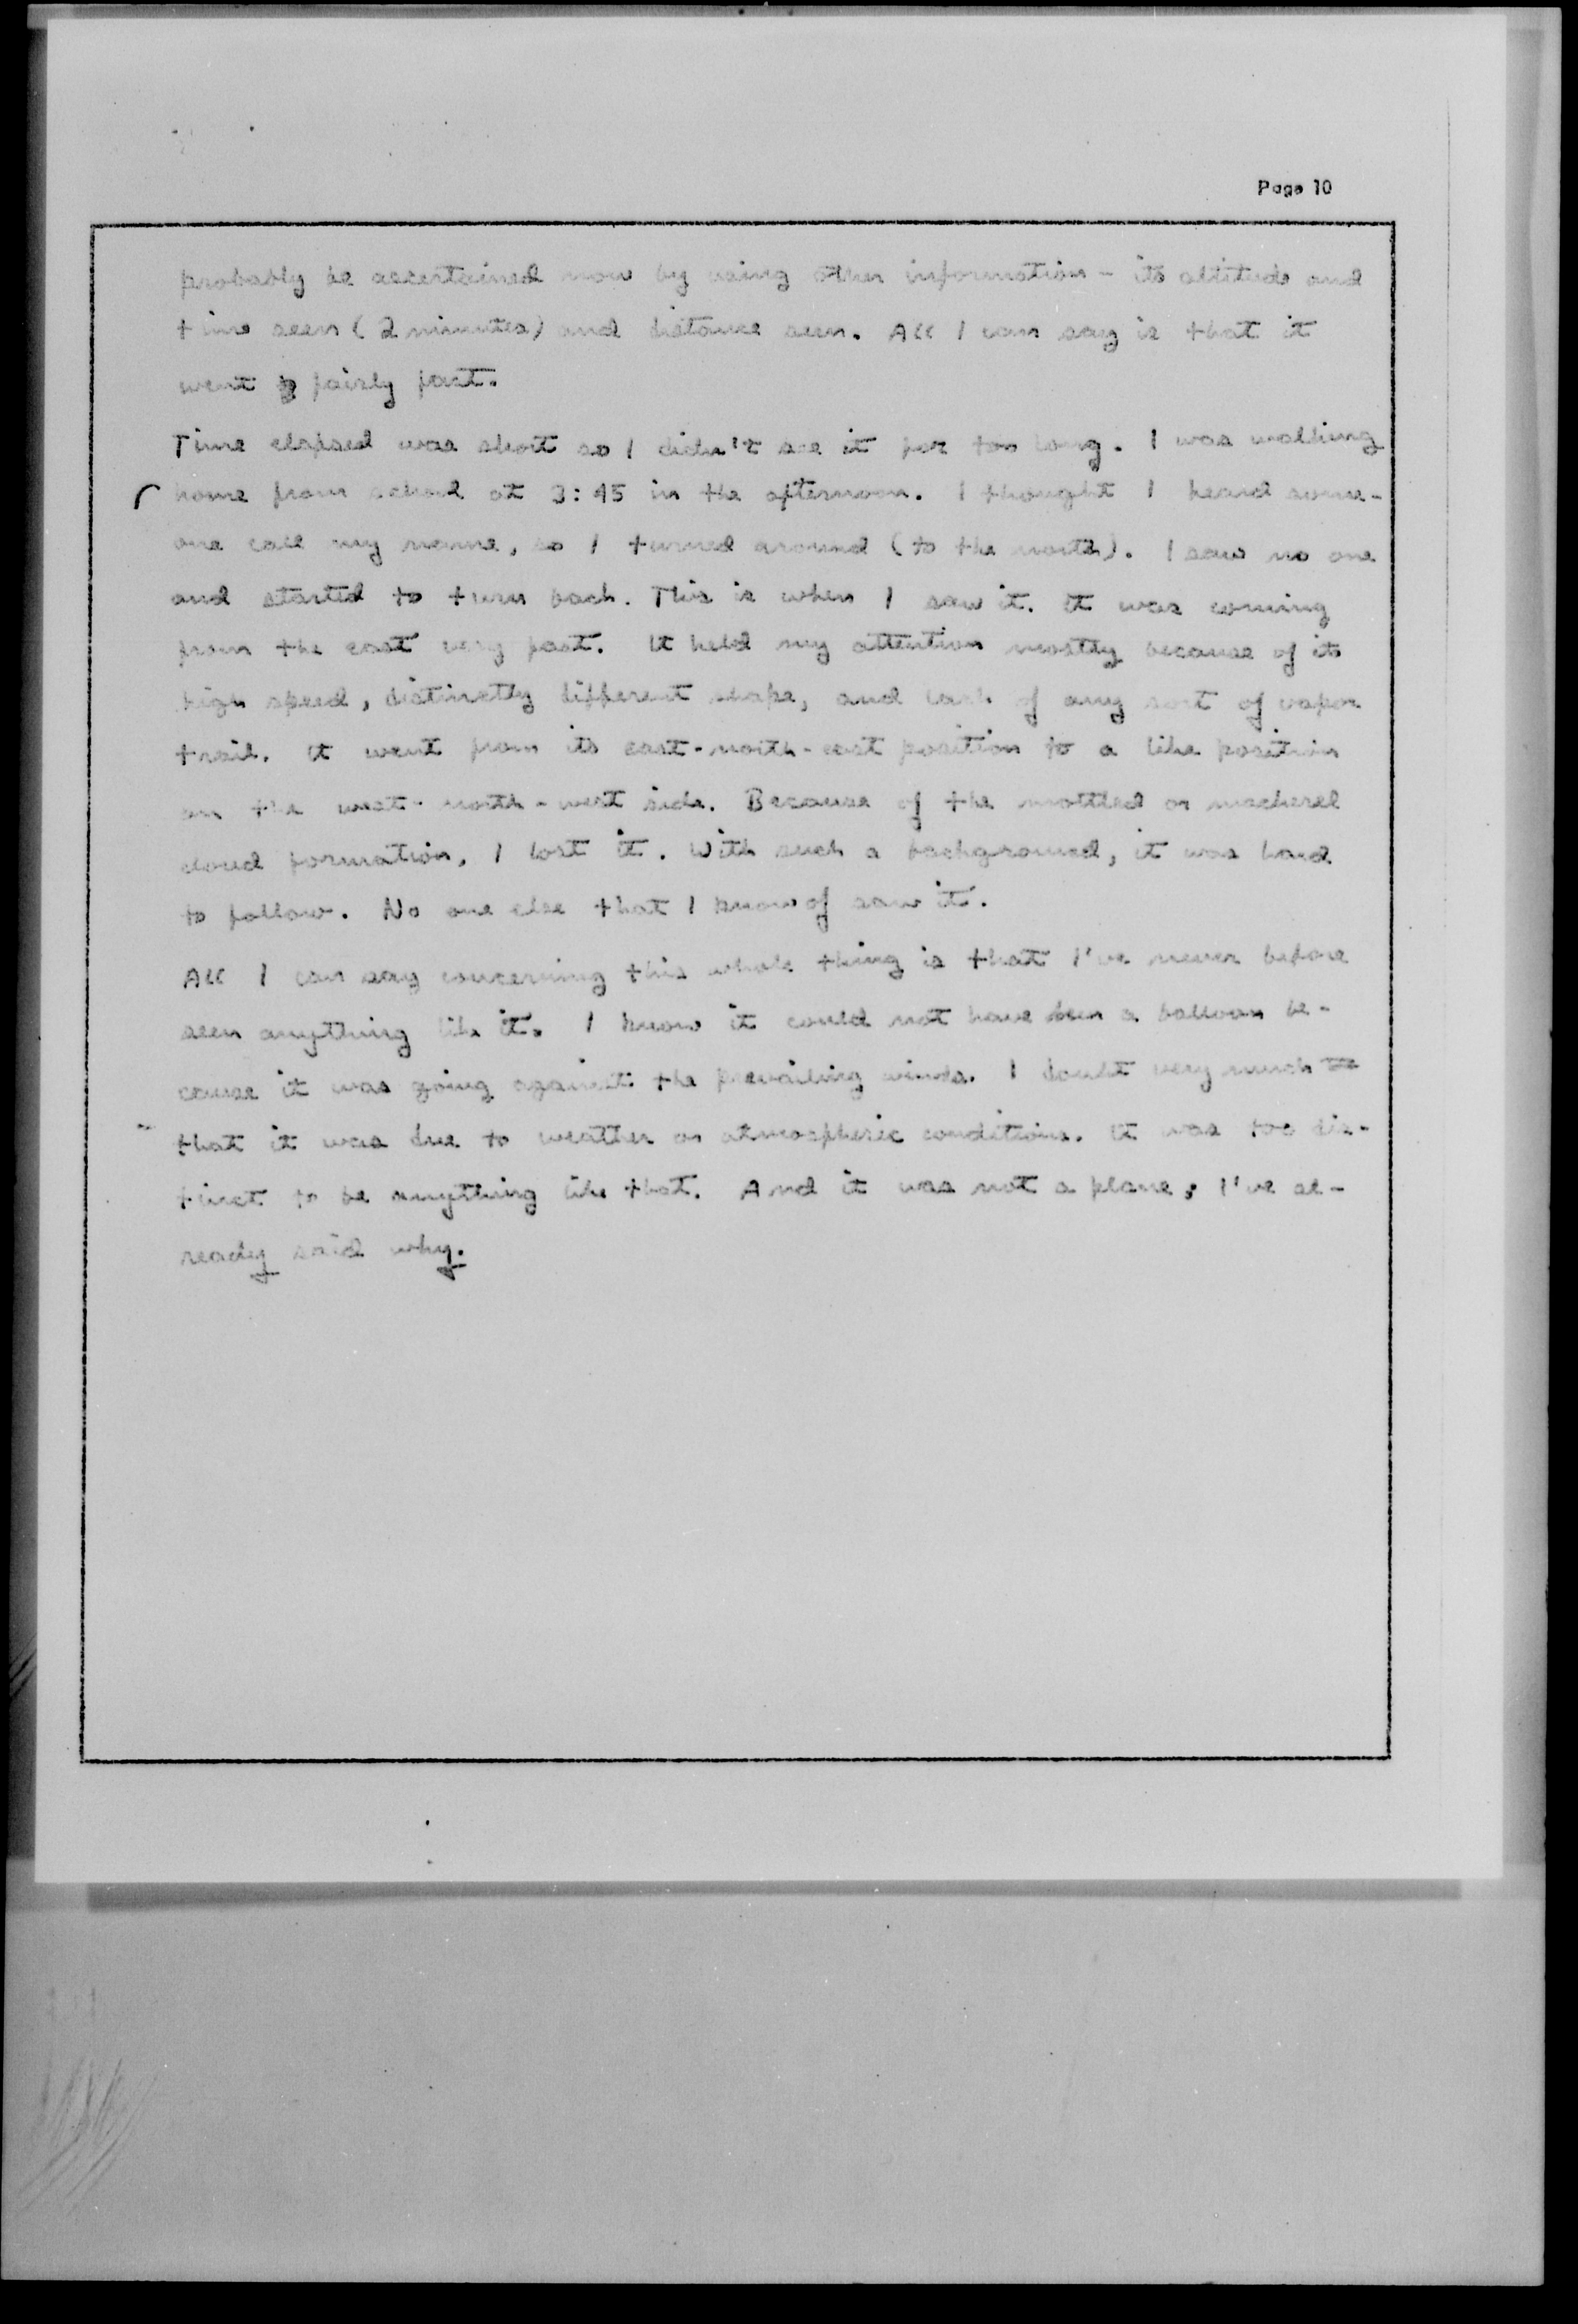 Page 10
probably be ascertained now by using other information - its altitude and
time seen (2 minutes) and distance seen. All I can say is that it
went fairly fast.
Time elapsed was short so I didn't see it for too long. I was walking
home from school at 3:45 in the afternoon. I thought I heard some-
one call my name, so I turned around (to the north). I saw no one
and started to turn back. This is when I saw it. It was coming
from the east very fast. It held my attention mostly because of its
high speed, distinctly different shape, and lack of any sort of vapor
trail. It went from its east-north-east position to a like position
on the west-north-west side. Because of the mottled or mackerel
cloud formation, I lost it. With such a background, it was hard
to follow. No one else that I know of saw it.
All I can say concerning this whole thing is that I've never before
seen anything like it. I know it could not have been a balloon be-
cause it was going against the prevailing winds. I doubt very much
that it was due to weather or atmospheric conditions. It was too dis-
tinct to be anything like that. And it was not a plane; I've al-
ready said why.